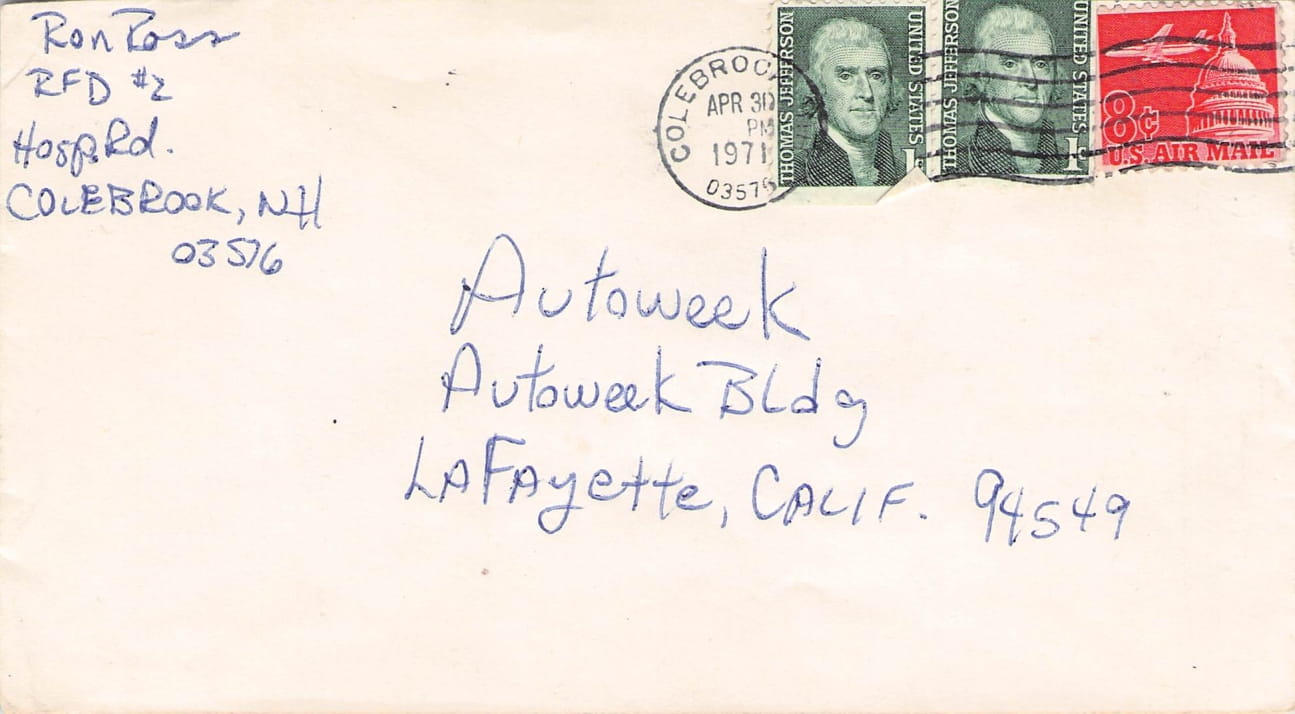 Ron Ross
RFD #2
Hosp. Rd.
COLEBROOK, NH
03576
COLEBROOK
APR 30
PM
1971
03576
THOMAS JEFFERSON
UNITED STATES
1¢
THOMAS JEFFERSON
UNITED STATES
1¢
8¢
U.S. AIR MAIL
Autoweek
Autoweek Bldg
LAFAyette, CALIF. 94549